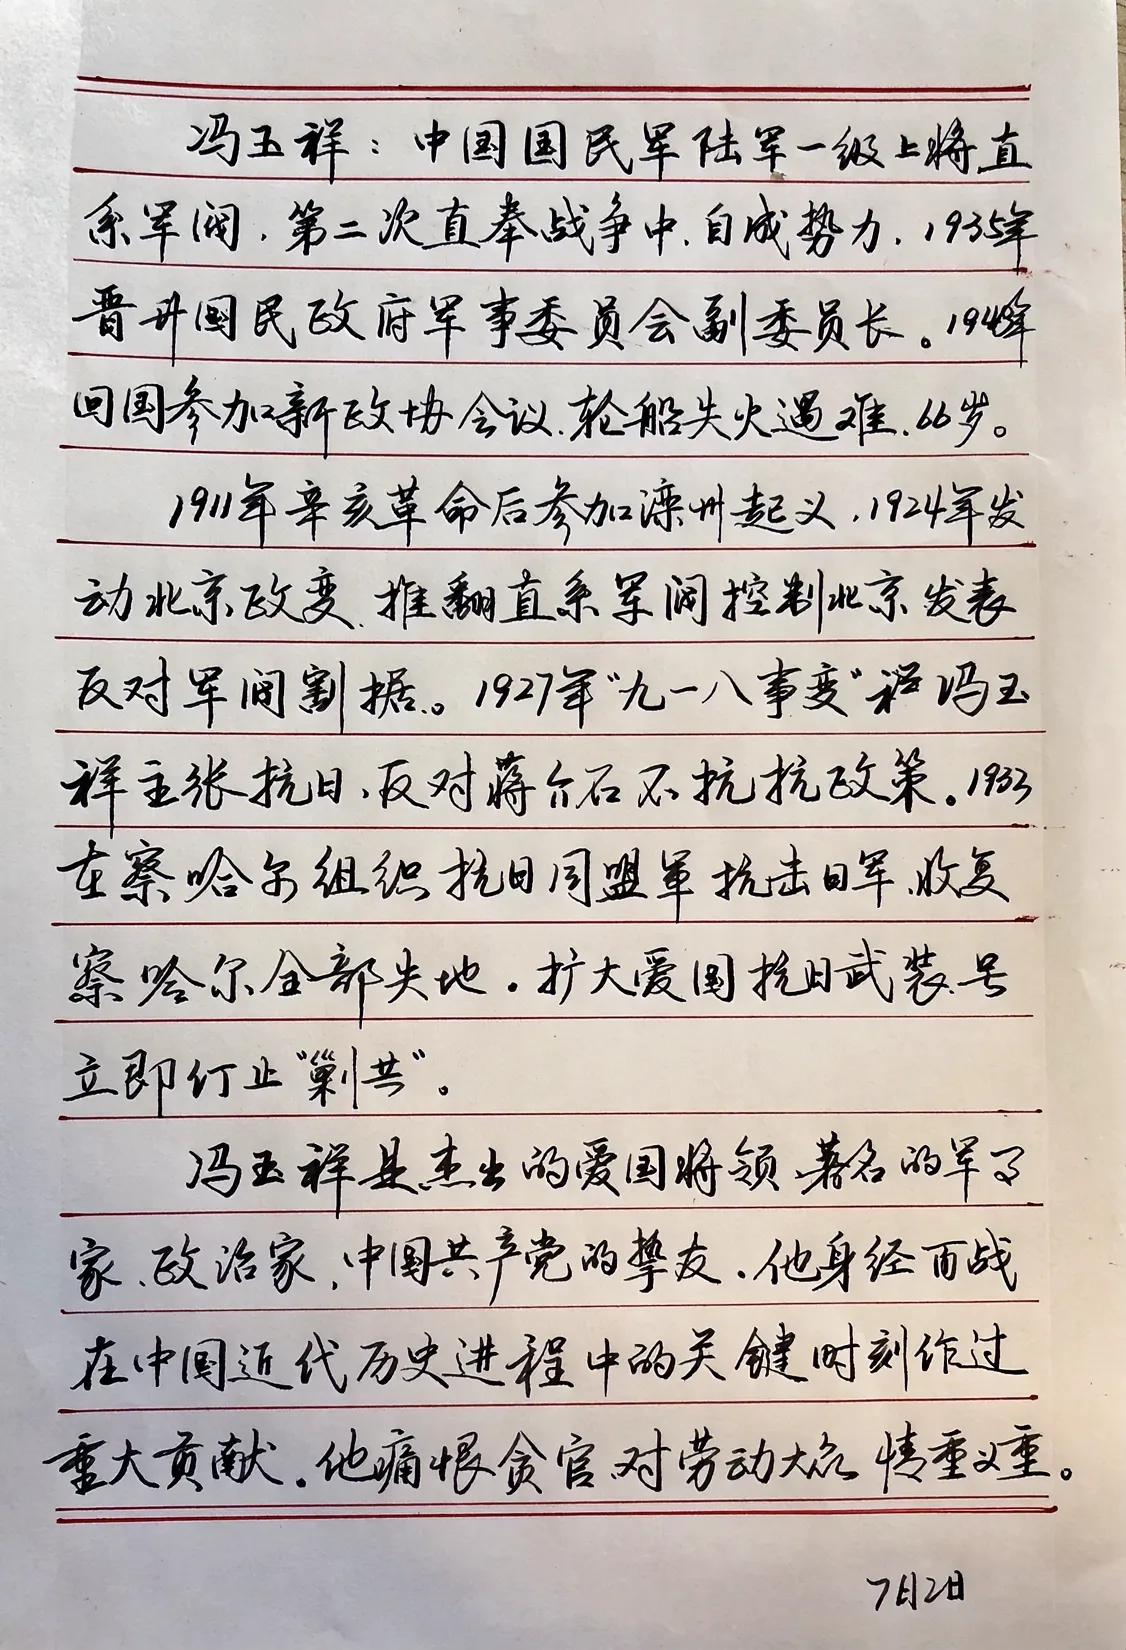 冯玉祥：中国国民军陆军一级上将直
系军阀，第二次直奉战争中、自成势力，1935年
晋升国民政府军事委员会副委员长。1948年
回国参加新政协会议、轮船失火遇难、66岁。
1911年辛亥革命后参加滦州起义，1924年发
动北京政变、推翻直系军阀控制北京发表
反对军阀割据。1927年“九一八事变”冯玉
祥主张抗日、反对蒋介石不抗抗政策。1933
在察哈尔组织抗日同盟军抗击日军、收复
察哈尔全部失地。扩大爱国抗日武装、号
立即仃止“剿共”。
冯玉祥是杰出的爱国将领、著名的军事
家、政治家，中国共产党的挚友。他身经百战
在中国近代历史进程中的关键时刻作过
重大贡献。他痛恨贪官对劳动大众情重义重。
7月2日